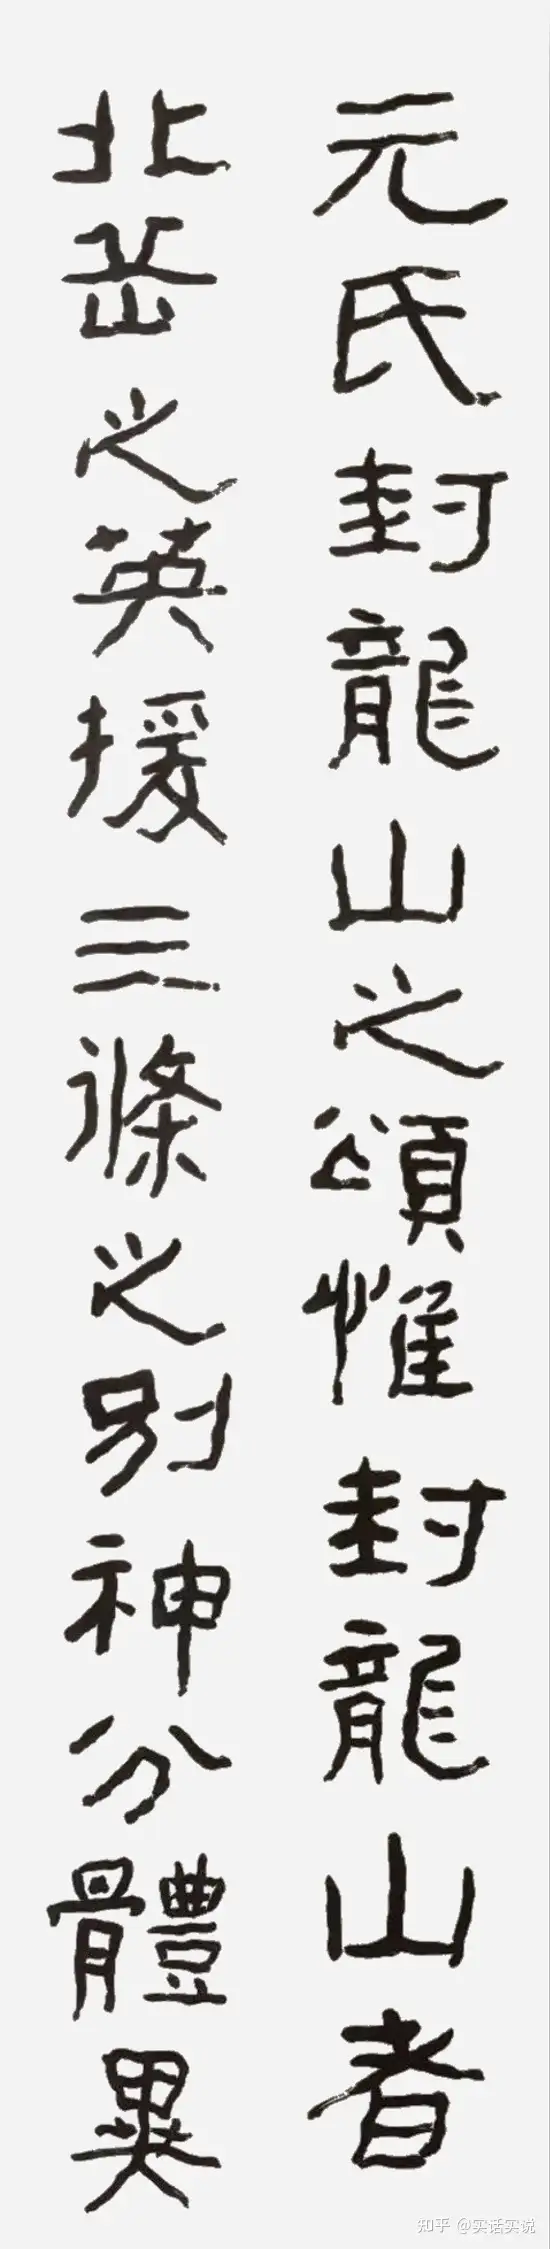 元氏封龍山之頌惟封龍山者
北岳之英援三條之別神分體異
知乎 @实话实说